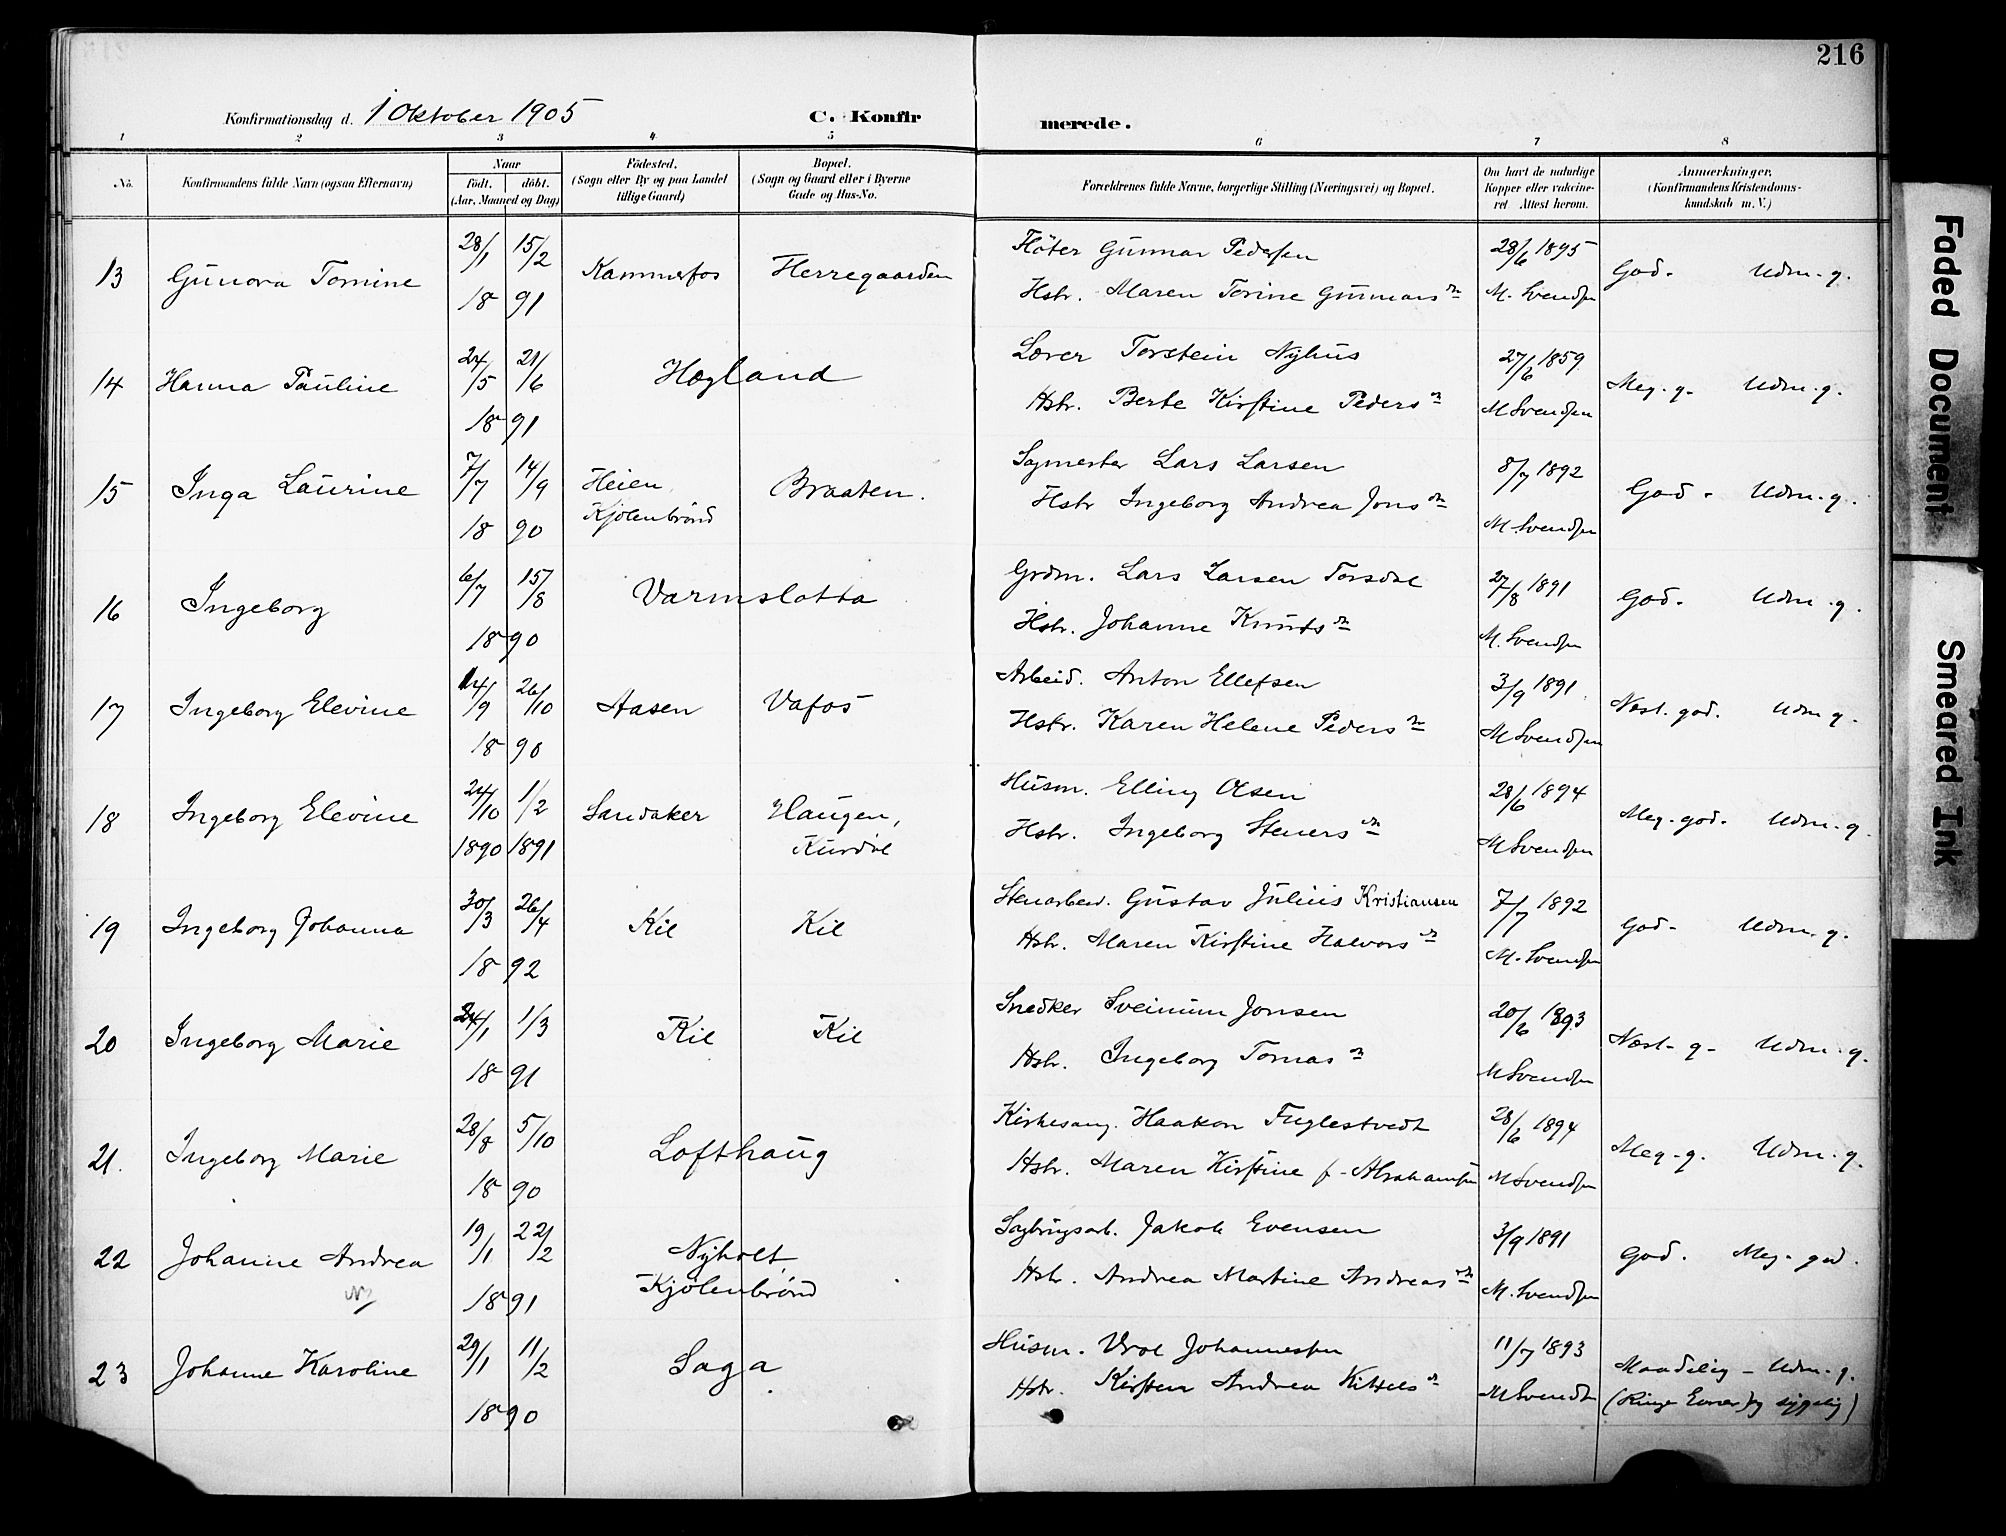 216
Konfirmationsdag d. 1 Oktober 1905
C. Konfirmerede.
1 2 3 4 5 6 7 8
No.
Konfirmandens fulde Navn (ogsaa Efternavn)
Naar
født. døbt.
(Aar, Maaned og Dag)
Fødested.
(Sogn eller By og paa Landet
tillige Gaard)
Bopæl.
(Sogn og Gaard eller i Byerne
Gade og Hus-No.
Forældrenes fulde Navne, borgerlige Stilling (Næringsvei) og Bopæl.
Om havt de naturlige
Kopper eller vakcine-
ret. Attest herom.
Anmærkninger,
(Konfirmandens Kristendoms-
kundskab m. V.)
13 Gunora Tomine 28/1 15/2 1891 Kammerfos Herregaarden
Fløter Gunnar Pedersen
Hstr. Maren Torine Gunnarsdn
28/6 1895
M. Svendsen
God. Udm. g.
14 Hanna Pauline 24/5 21/6 1891 Hegland
Lærer Torstein Nyhus
Hstr. Berte Kirstine Pedersdn
27/6 1859
M Svendsen
Meg. g. Udm. g.
15 Inga Laurine 7/7 14/9 1890 Heien Kjølenbrønd Braaten.
Sagmester Lars Larsen
Hstr Ingeborg Andrea Jonsdn
8/7 1892
M. Svendsen
God. Udm. g.
16 Ingeborg 6/7 15/8 1890 Varmslotta
Grdm. Lars Larsen Torsdal
Hstr. Johanne Knutsdn
27/8 1891
M. Svendsen
God. Udm. g.
17 Ingeborg Elevine 14/9 26/10 1890 Aasen Vafos
Arbeid. Anton Ellefsen
Hstr. Karen Helene Pedersdn
3/9 1891
M Svendsen
Næst. god. Udm g.
18 Ingeborg Elevine 24/10 1890 1/2 1891 Sandaker Haugen, Kurdøl
Husm. Elling Olsen
Hstr. Ingeborg Stenersdn
28/6 1894
M Svendsen
Meg. god. Udm. g.
19 Ingeborg Johanna 30/3 26/4 1892 Kil Kil
Stenarbeid. Gustav Julius Kristiansen
Hstr. Maren Kirstine Halvorsdn
7/7 1892
M. Svendsen
God. Udm. g.
20 Ingeborg Marie 24/1 1/3 1891 Kil Kil
Snedker Sveinum Jonsen
Hstr. Ingeborg Tomasdn
20/6 1893
M Svendsen
Næst. g. Udm. g.
21. Ingeborg Marie 28/8 5/10 1890 Lofthaug
Kirkesang. Haakon Fuglestvedt
Hstr. Maren Kirstine f. Abrahamsen
28/6 1894
M Svendsen
Meg. g. Udm. g.
22 Johanne Andrea 19/1 22/2 1891 Nyholt, Kjølenbrønd
Jakob Evensen
Hstr. Andrea Martine Andreasdn
3/9 1891
M. Svendsen
God. Meg. god.
23 Johanne Karoline 29/1 11/2 1890 Saga
Husm. Vrol Johannesen
Hstr. Kirsten Andrea Kittelsdn
11/7 1893
M Svendsen
Maadelig – Udm. g.
(Ringe Evner og sygelig)
Faded Document
Smeared Ink